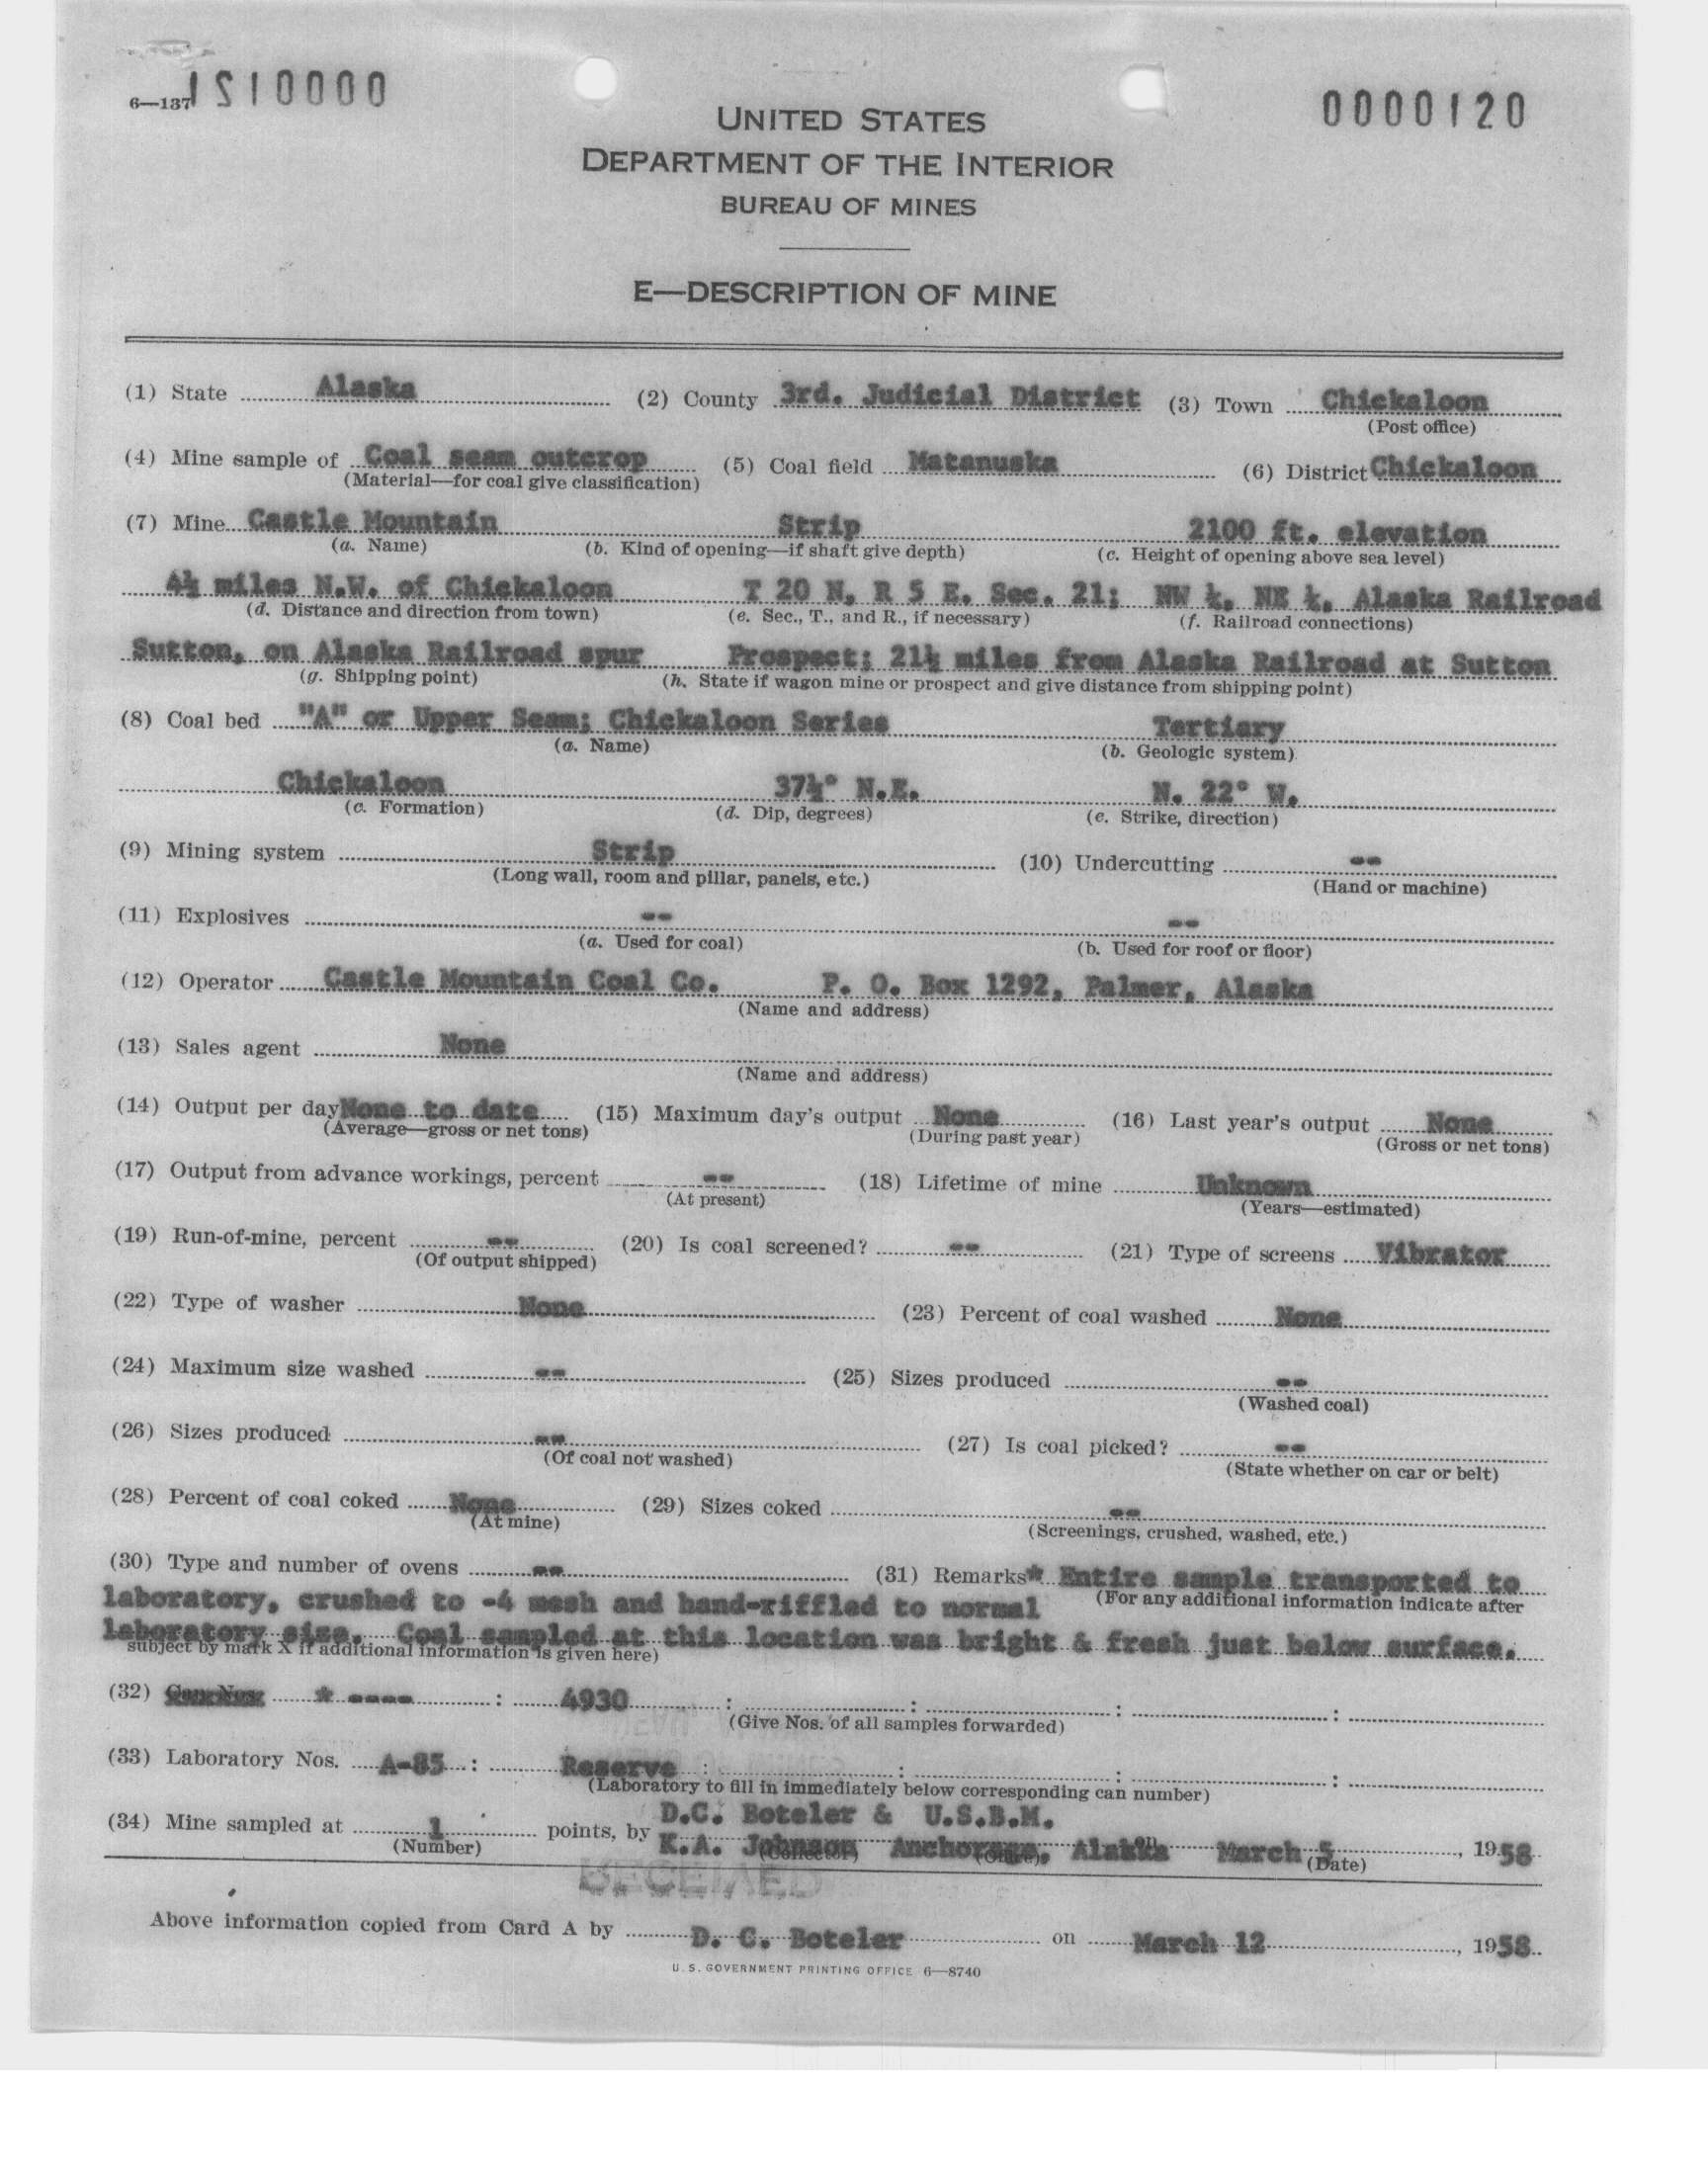 6—137
0000120
UNITED STATES
DEPARTMENT OF THE INTERIOR
BUREAU OF MINES
E—DESCRIPTION OF MINE
(1) State Alaska (2) County 3rd. Judicial District (3) Town Chickaloon
(Post office)
(4) Mine sample of Coal seam outcrop (5) Coal field Matanuska (6) District Chickaloon
(Material—for coal give classification)
(7) Mine Castle Mountain Strip 2100 ft. elevation
(a. Name) (b. Kind of opening—if shaft give depth) (c. Height of opening above sea level)
4½ miles N.W. of Chickaloon T 20 N, R 5 E. Sec. 21; NW ¼, NE ¼, Alaska Railroad
(d. Distance and direction from town) (e. Sec., T., and R., if necessary) (f. Railroad connections)
Sutton, on Alaska Railroad spur Prospect; 21½ miles from Alaska Railroad at Sutton
(g. Shipping point) (h. State if wagon mine or prospect and give distance from shipping point)
(8) Coal bed "A" or Upper Seam; Chickaloon Series Tertiary
(a. Name) (b. Geologic system)
Chickaloon 37½° N.E. N. 22° W.
(c. Formation) (d. Dip, degrees) (e. Strike, direction)
(9) Mining system Strip (10) Undercutting --
(Long wall, room and pillar, panels, etc.) (Hand or machine)
(11) Explosives -- --
(a. Used for coal) (b. Used for roof or floor)
(12) Operator Castle Mountain Coal Co. P. O. Box 1292, Palmer, Alaska
(Name and address)
(13) Sales agent None
(Name and address)
(14) Output per day None to date (15) Maximum day's output None (16) Last year's output None
(Average—gross or net tons) (During past year) (Gross or net tons)
(17) Output from advance workings, percent -- (18) Lifetime of mine Unknown
(At present) (Years—estimated)
(19) Run-of-mine, percent -- (20) Is coal screened? -- (21) Type of screens Vibrator
(Of output shipped)
(22) Type of washer None (23) Percent of coal washed None
(24) Maximum size washed -- (25) Sizes produced --
(Washed coal)
(26) Sizes produced -- (27) Is coal picked? --
(Of coal not washed) (State whether on car or belt)
(28) Percent of coal coked None (29) Sizes coked --
(At mine) (Screenings, crushed, washed, etc.)
(30) Type and number of ovens -- (31) Remarks* Entire sample transported to
laboratory, crushed to -4 mesh and hand-riffled to normal (For any additional information indicate after
laboratory size. Coal sampled at this location was bright & fresh just below surface.
subject by mark X if additional information is given here)
(32) * ---- : 4930 : : : :
(Give Nos. of all samples forwarded)
(33) Laboratory Nos. A-85 : Reserve : : : :
(Laboratory to fill in immediately below corresponding can number)
D.C. Boteler & U.S.B.M.
(34) Mine sampled at 1 points, by K.A. Johnson Anchorage, Alaska on March 5, 1958
(Number) (Collector) (Office) (Date)
RECEIVED
Above information copied from Card A by D. C. Boteler on March 12, 1958.
U. S. GOVERNMENT PRINTING OFFICE 6—8740